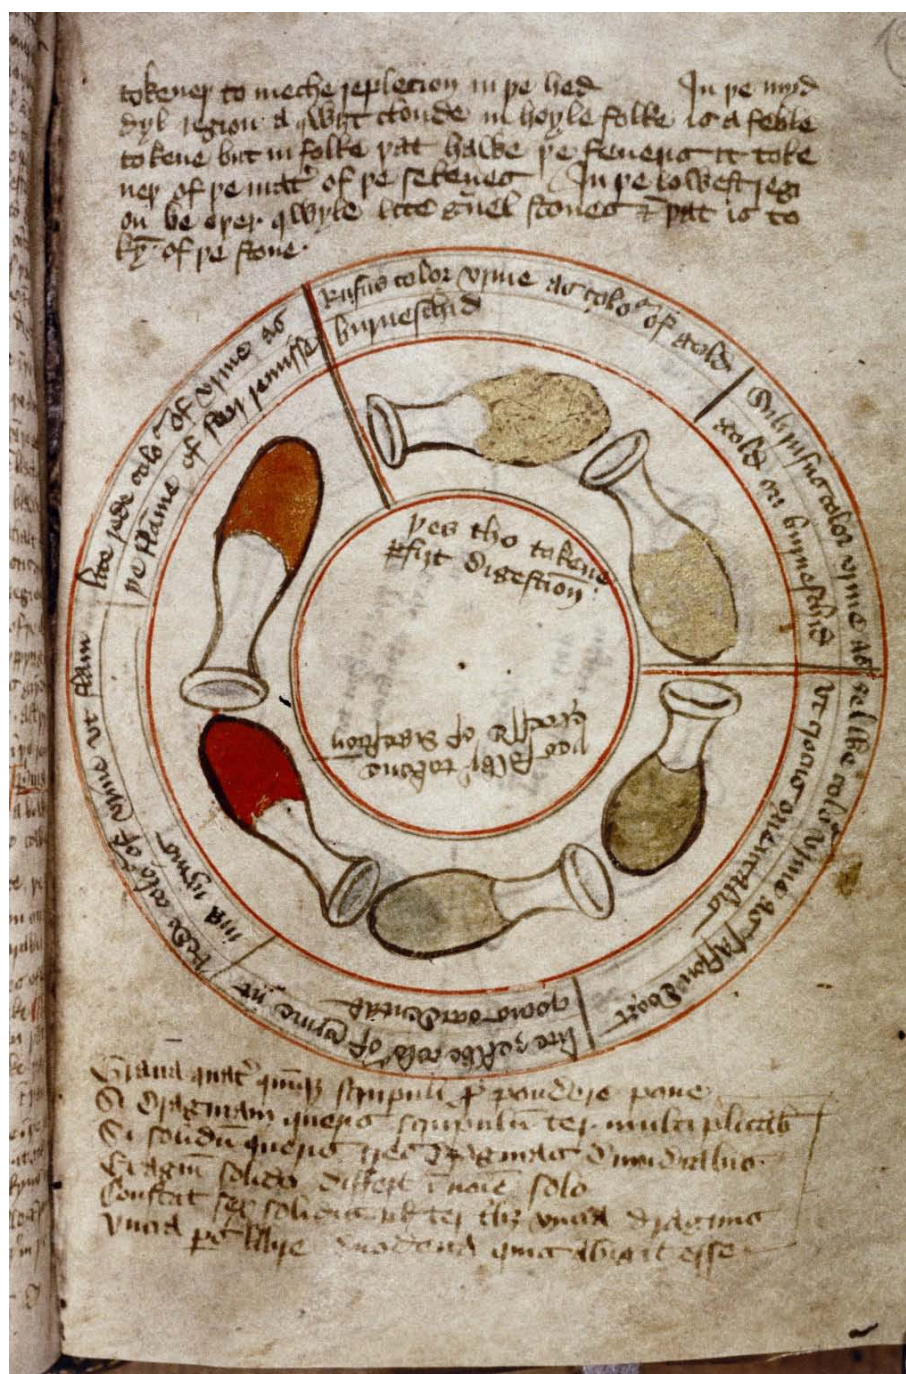 tokeneþ to meche replecion in þe hed In þe myd
dyl region a qwyt cloude in hoyle folke is a feble
tokene but in folke þat haue þe feueris it toke
neþ of þe mať of þe sekenes In þe lowest regi
on be oþer qwyle lite gruel stones & þat is to
kȳ of þe stone
Rufus color vrine as colo͛ of gold
burneschid
Subrufus color vrine as
gold on burneschid
ȝelike colo͛ vrine as safron dort
vt crocus orientalis
lite ȝelke colo͛ of vrine ut
crocus occidental
rede colo͛ of vrine vt flam
ma ignis
lite rede colo͛ of vrine as
þe flame of feer remisse
þes tho tokene
pfit digestion
excess of digestion
Grana quať scrupuli p pondere pone
Si dragmam queris scrupulū ter multiplicab
Si solidū queris tres dragmas dimidiabis
Exagiū solido differt ī noīe solo
Constat sex solidis ter vncia dragmis
vncia ps libre duodena quis ambigit esse